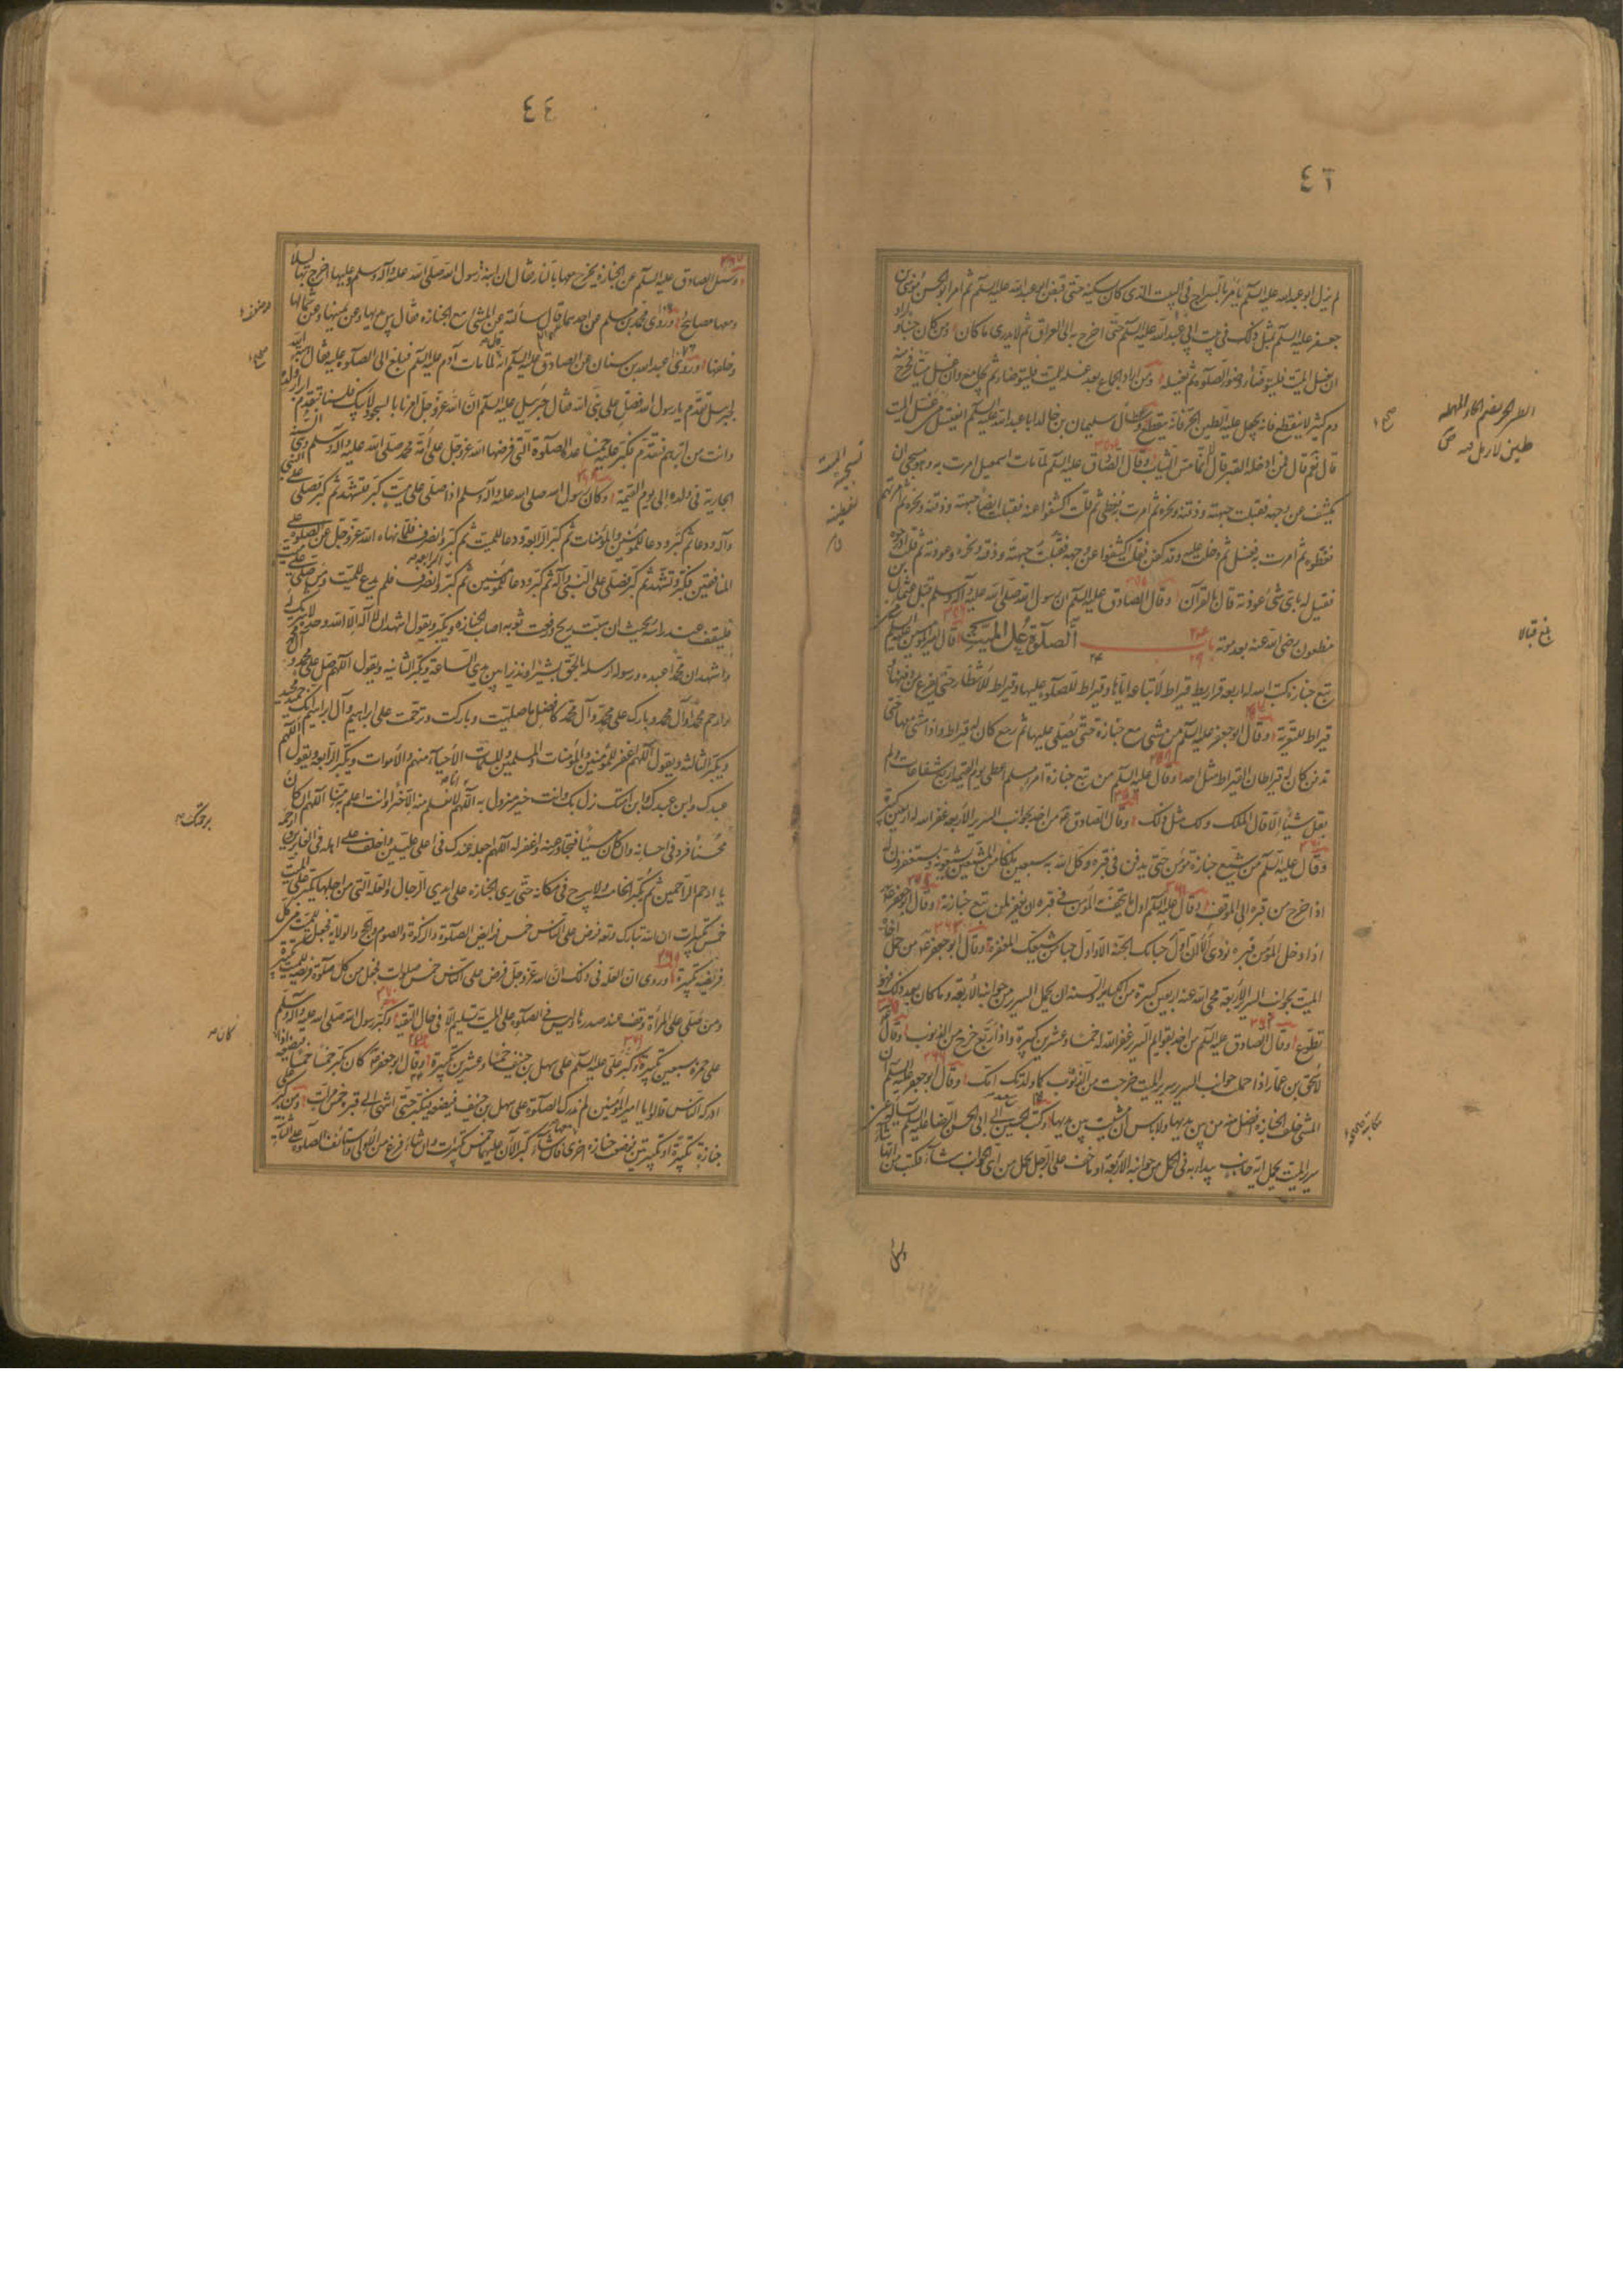 ٤٣
لم يزل ابو عبد الله عليه السلم يأمر بالسراج فى البيت الذى كان يسكنه حتى قبض ابو عبد الله عليه السلم ثم امر ابو الحسن موسى بن
جعفر عليه السلم بمثل ذلك فى بيت ابى عبد الله عليه السلم حتى اخرج به الى العراق ثم لا يدرى ما كان ومن كان جنبا و اراد
ان يغسل الميت فليتوضأ وضوء الصلوة ثم يغسله ومن اراد الجماع بعد غسله للميت فليتوضأ ثم يجامع وان غسل ميتا فخرج منه
دم كثير لا ينقطع فانه يجعل عليه الطين الحر فانه ينقطع وسأل سليمان بن خالد ابا عبد الله عليه السلم ايغتسل من غسل الميت
قال نعم قال فمن ادخله القبر قال لا انما مس الثياب وقال الصادق عليه السلم لما مات اسمعيل امرت به وهو مسجى ان
يكشف عن وجهه فقبلت جبهته وذقنه ونحره ثم امرت به فغطى ثم قلت اكشفوا عنه فقبلت ايضا جبهته وذقنه ونحره ثم امرتهم
فغطوه ثم امرت به فغسل ثم دخلت عليه وقد كفن فقلت اكشفوا عن وجهه فقبلت جبهته وذقنه ونحره وعوذته ثم قلت ادرجوه
فقيل له باى شئ عوذته قال بالقرآن وقال الصادق عليه السلم ان رسول الله صلى الله عليه وآله وسلم قبل عثمان بن
مظعون رضى الله عنه بعد موته باب الصلوة على الميت قال امير المؤمنين عليه السلم من
تبع جنازة كتب الله له اربعة قراريط قيراط لاتباعه اياها وقيراط للصلوة عليها وقيراط للانتظار حتى يفرغ من دفنها و
قيراط للتعزية وقال ابو جعفر عليه السلم من مشى مع جنازة حتى يصلى عليها ثم رجع كان له قيراط واذا مشى معها حتى
تدفن كان له قيراطان القيراط مثل احد وقال عليه السلم من تبع جنازة امرء مسلم اعطى يوم القيمة اربع شفاعات ولم
يقل شيئا الا قال الملك ولك مثل ذلك وقال الصادق ع من اخذ بجوانب السرير الاربعة غفر الله له اربعين كبيرة
وقال عليه السلم من شيع جنازة مؤمن حتى يدفن فى قبره وكل الله به سبعين ملكا من المشيعين يشيعونه ويستغفرون له
اذا خرج من قبره الى الموقف وقال عليه السلم اول ما يتحف به المؤمن فى قبره ان يغفر لمن تبع جنازته وقال ابو جعفر ع
اذا دخل المؤمن قبره نودى الا ان اول حبائك الجنة الا واول حباء من تبعك المغفرة وقال ابو جعفر ع من حمل اخاه
الميت بجوانب السرير الاربعة محى الله عنه اربعين كبيرة من الكبائر والسنة ان يحمل السرير من جوانبه الاربعة وما كان بعد ذلك فهو
تطوع وقال الصادق عليه السلم من اخذ بقوايم السرير غفر الله له خمسا وعشرين كبيرة واذا ربع خرج من الذنوب وقال
لاسحق بن عمار اذا حملت جوانب السرير سرير الميت خرجت من الذنوب كما ولدتك امك وقال ابو جعفر عليه السلم ان
المشى خلف الجنازة افضل من بين يديها ولا بأس ان مشيت بين يديها وكتب الحسين بن سعيد الى ابى الحسن الرضا عليه السلم يسأله عن
سرير الميت يحمل اله جانب يبدأ به فى الحمل من جوانبه الاربعة او ما خف على الرجل يحمل من اى الجوانب شاء فكتب من ايها شاء
بلغ قبالا
٤٤
وسئل الصادق عليه السلم عن الجنازة يخرج معها بالنار فقال ان ابنة رسول الله صلى الله عليه وآله وسلم وعليها اخرج بها ليلا
ومعها مصابيح وروى محمد بن مسلم عن احدهما قال سألته عن المشى مع الجنازه فقال بين يديها وعن يمينها وعن شمالها
وخلفها وروى عبد الله بن سنان عن الصادق عليه السلم انه قال لما مات آدم عليه السلم فبلغ الى الصلوة عليه فقال هبة الله
لجبرئيل تقدم يا رسول الله فصل على نبى الله فقال جبرئيل عليه السلم ان الله عز وجل امرنا بالسجود لابيك فلسنا نتقدم ابرار ولده
وانت من ابرهم فتقدم فكبر عليه خمسا عدة الصلوة التى فرضها الله عز وجل على امة محمد صلى الله عليه وآله وسلم وهى السنة
الجارية فى ولده الى يوم القيمة وكان رسول الله صلى الله عليه وآله وسلم اذا صلى على ميت كبر فتشهد ثم كبر فصلى على النبى
وآله ودعا ثم كبر ودعا للمؤمنين والمؤمنات ثم كبر الرابعة ودعا للميت ثم كبر وانصرف فلما نهاه الله عز وجل عن الصلوة على
المنافقين فكبر وتشهد ثم كبر فصلى على النبى وآله ثم كبر ودعا للمؤمنين ثم كبر الرابعة وانصرف فلم يدع للميت ومن صلى على ميت
فليقف عند رأسه بحيث ان هبت ريح فرفعت ثوبه اصاب الجنازه ويكبر ويقول اشهد ان لا اله الا الله وحده لا شريك له
واشهد ان محمدا عبده ورسوله ارسله بالحق بشيرا ونذيرا بين يدى الساعة ويكبر الثانيه ويقول اللهم صل على محمد وآل محمد
وارحم محمدا وآل محمد وبارك على محمد وآل محمد كافضل ما صليت وباركت وترحمت على ابراهيم وآل ابراهيم انك حميد مجيد
ويكبر الثالثه ويقول اللهم اغفر للمؤمنين والمؤمنات والمسلمين والمسلمات الاحياء منهم والاموات ويكبر الرابعه ويقول اللهم
عبدك وابن عبدك وابن امتك نزل بك وانت خير منزول به اللهم انا لا نعلم منه الا خيرا وانت اعلم به منا اللهم ان كان
محسنا فزد فى احسانه وان كان مسيئا فتجاوز عنه واغفر له اللهم اجعله عندك فى اعلى عليين واخلف على اهله فى الغابرين وارحمه
يا ارحم الراحمين ثم يكبر الخامسة ولا يبرح فى مكانه حتى يرى الجنازه على ايدى الرجال والعلة التى من اجلها يكبر على الميت
خمس تكبيرات ان الله تبارك وتع فرض على الناس خمس فرايض الصلوة والزكوة والصوم والحج والولاية فجعل للميت من كل
فريضة تكبيرة وروى ان العلة فى ذلك ان الله عز وجل فرض على الناس خمس صلوات فجعل من كل صلوة فريضة للميت تكبيرة
ومن صلى على المرأة وقف عند صدرها وليس فى الصلوة على الميت تسليم الا فى حال التقية وكبر رسول الله صلى الله عليه وآله وسلم
على حمزة سبعين تكبيرة وكبر على عليه السلم على سهل بن حنيف خمسا وعشرين تكبيرة وقال ابو جعفر ع كان يكبر خمسا خمسا اذا
ادركه الناس قالوا يا امير المؤمنين لم ندرك الصلوة على سهل بن حنيف فيضعه فيكبر حتى انتهى الى قبره خمس مرات ومن كبر على
جنازة تكبيرة او تكبيرتين فوضعت جنازه اخرى معها فان شاء كبر الآن عليهما خمس تكبيرات وان شاء فرغ من الاولى واستأنف الصلوة على الثانية